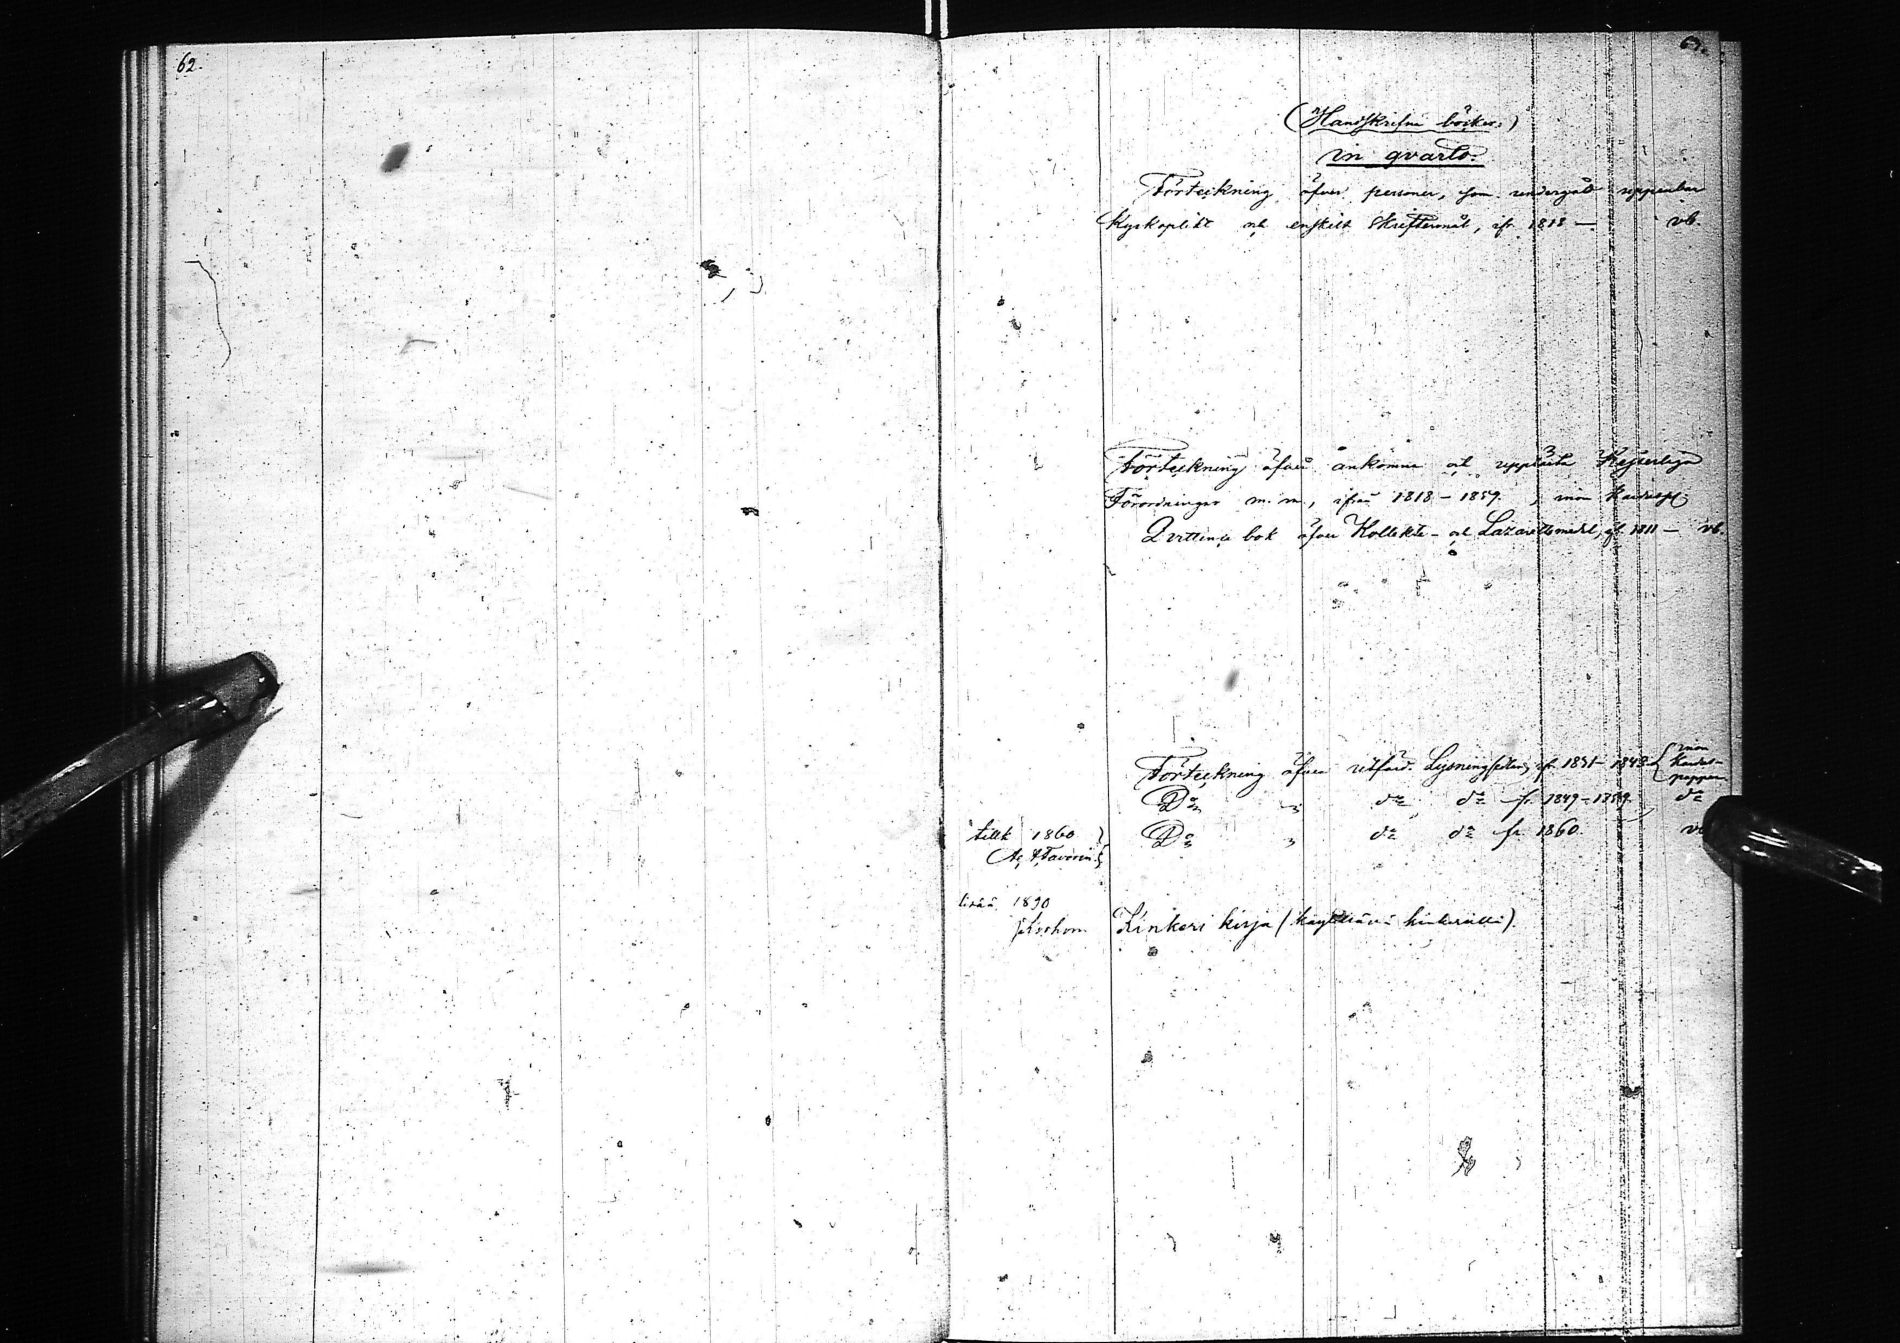 62.
63.
(Handskrifne böcker.)
in qvarto.
Förteckning öfver personer, som undergått uppenbar
Kyrkoplikt och enskilt Skriftermål, ifr. 1818 — vb.
Förteckning öfver ankomne och upplästa Kejserliga
Förordningar m. m., ifrån 1818 – 1859.
Qvittence bok öfver Kollekte- och Lazarettsmedel, ifr. 1811 — vb.
Förteckning öfver utfärd. Lysningssedlar, ifr. 1831 – 1848
Do " do do fr. 1849 – 1859. do
tillk 1860 Do " do do fr. 1860.
lisää 1890
Kinkeri kirja (käytettävä kinkerillä).